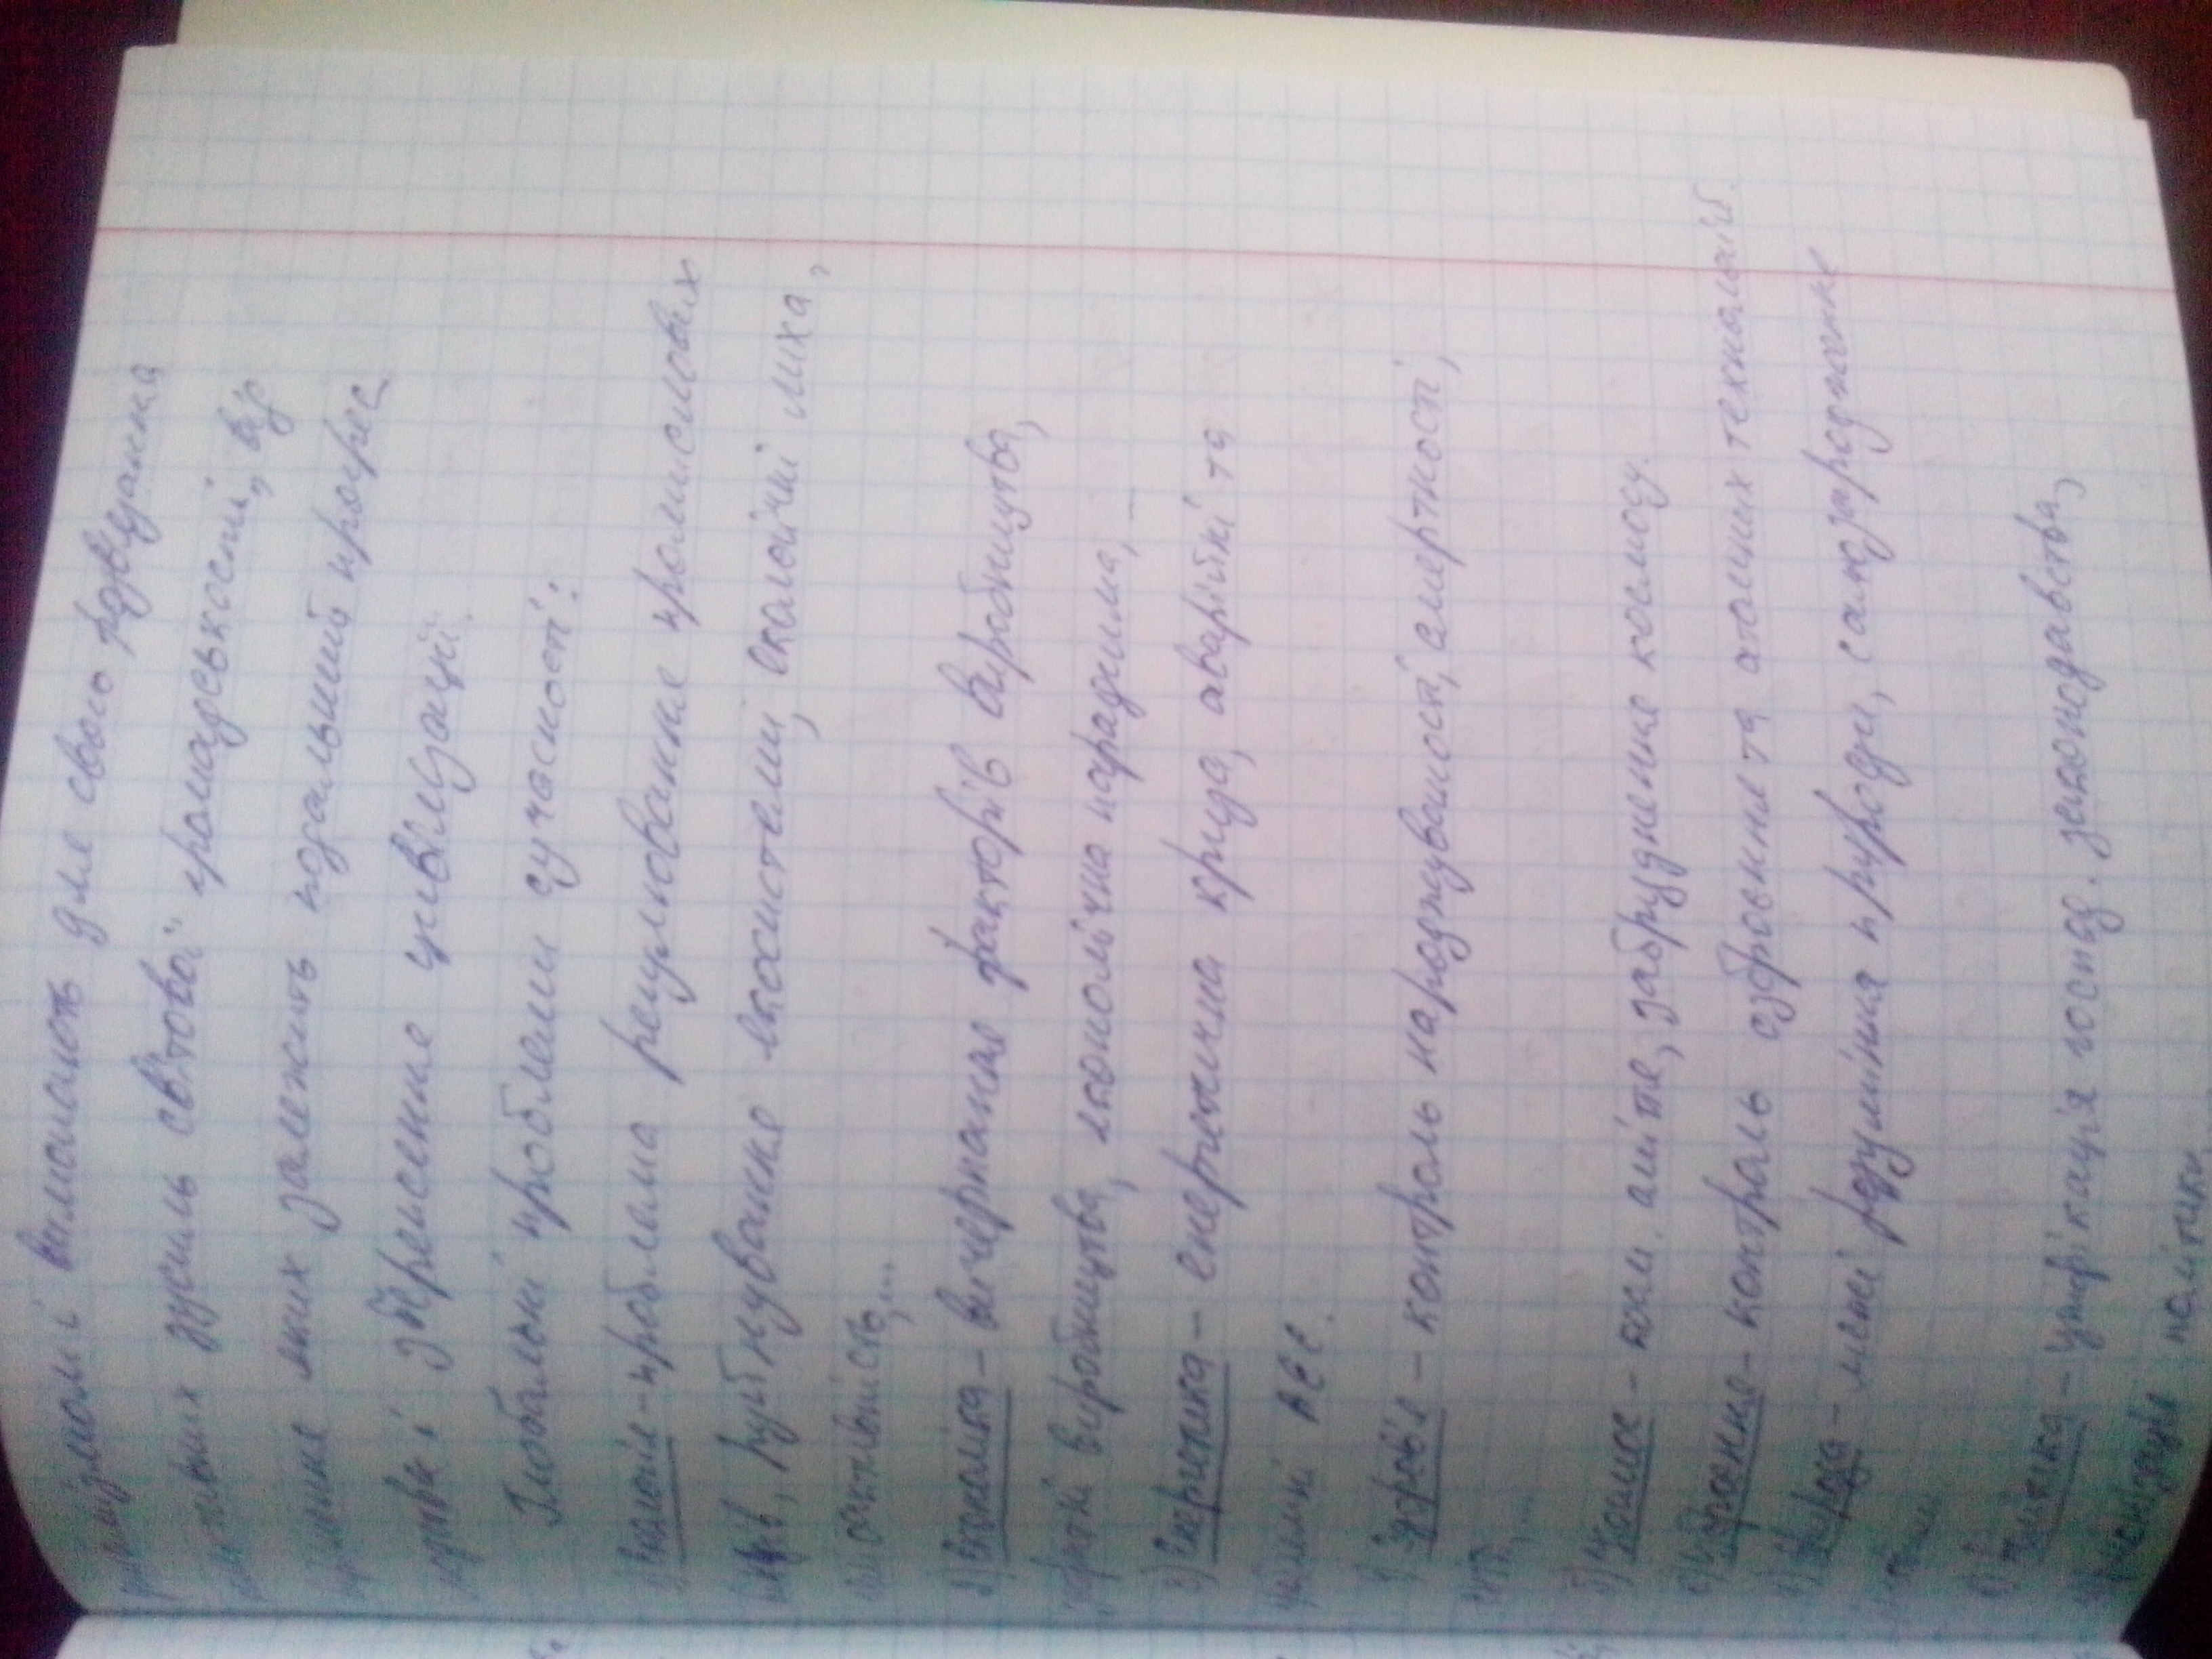 і вимагають для свого розв'язання
зусиль світової громадськості, від
яких залежить подальший прогрес
людства і збереження цивілізації.
Глобальні проблеми сучасності:
1) Екологія - проблема регулювання промислових
руйнування екосистеми, екологічні лиха,
радіоактивність,...
2) Економіка - вичерпання факторів виробництва,
виробництва, економічна парадигма, ...
3) Енергетика - енергетична криза, аварійні та
проблемні АЕС.
4) Здоров'я - контроль народжуваності, смертності,
5) Космос - косм. сміття, забруднення космосу.
6) Озброєння - контроль озброєння та атомних технологій.
7) Природа - межі розуміння природи, самозародження
8) Політика - уніфікація господ. законодавства,
гармонізація політики